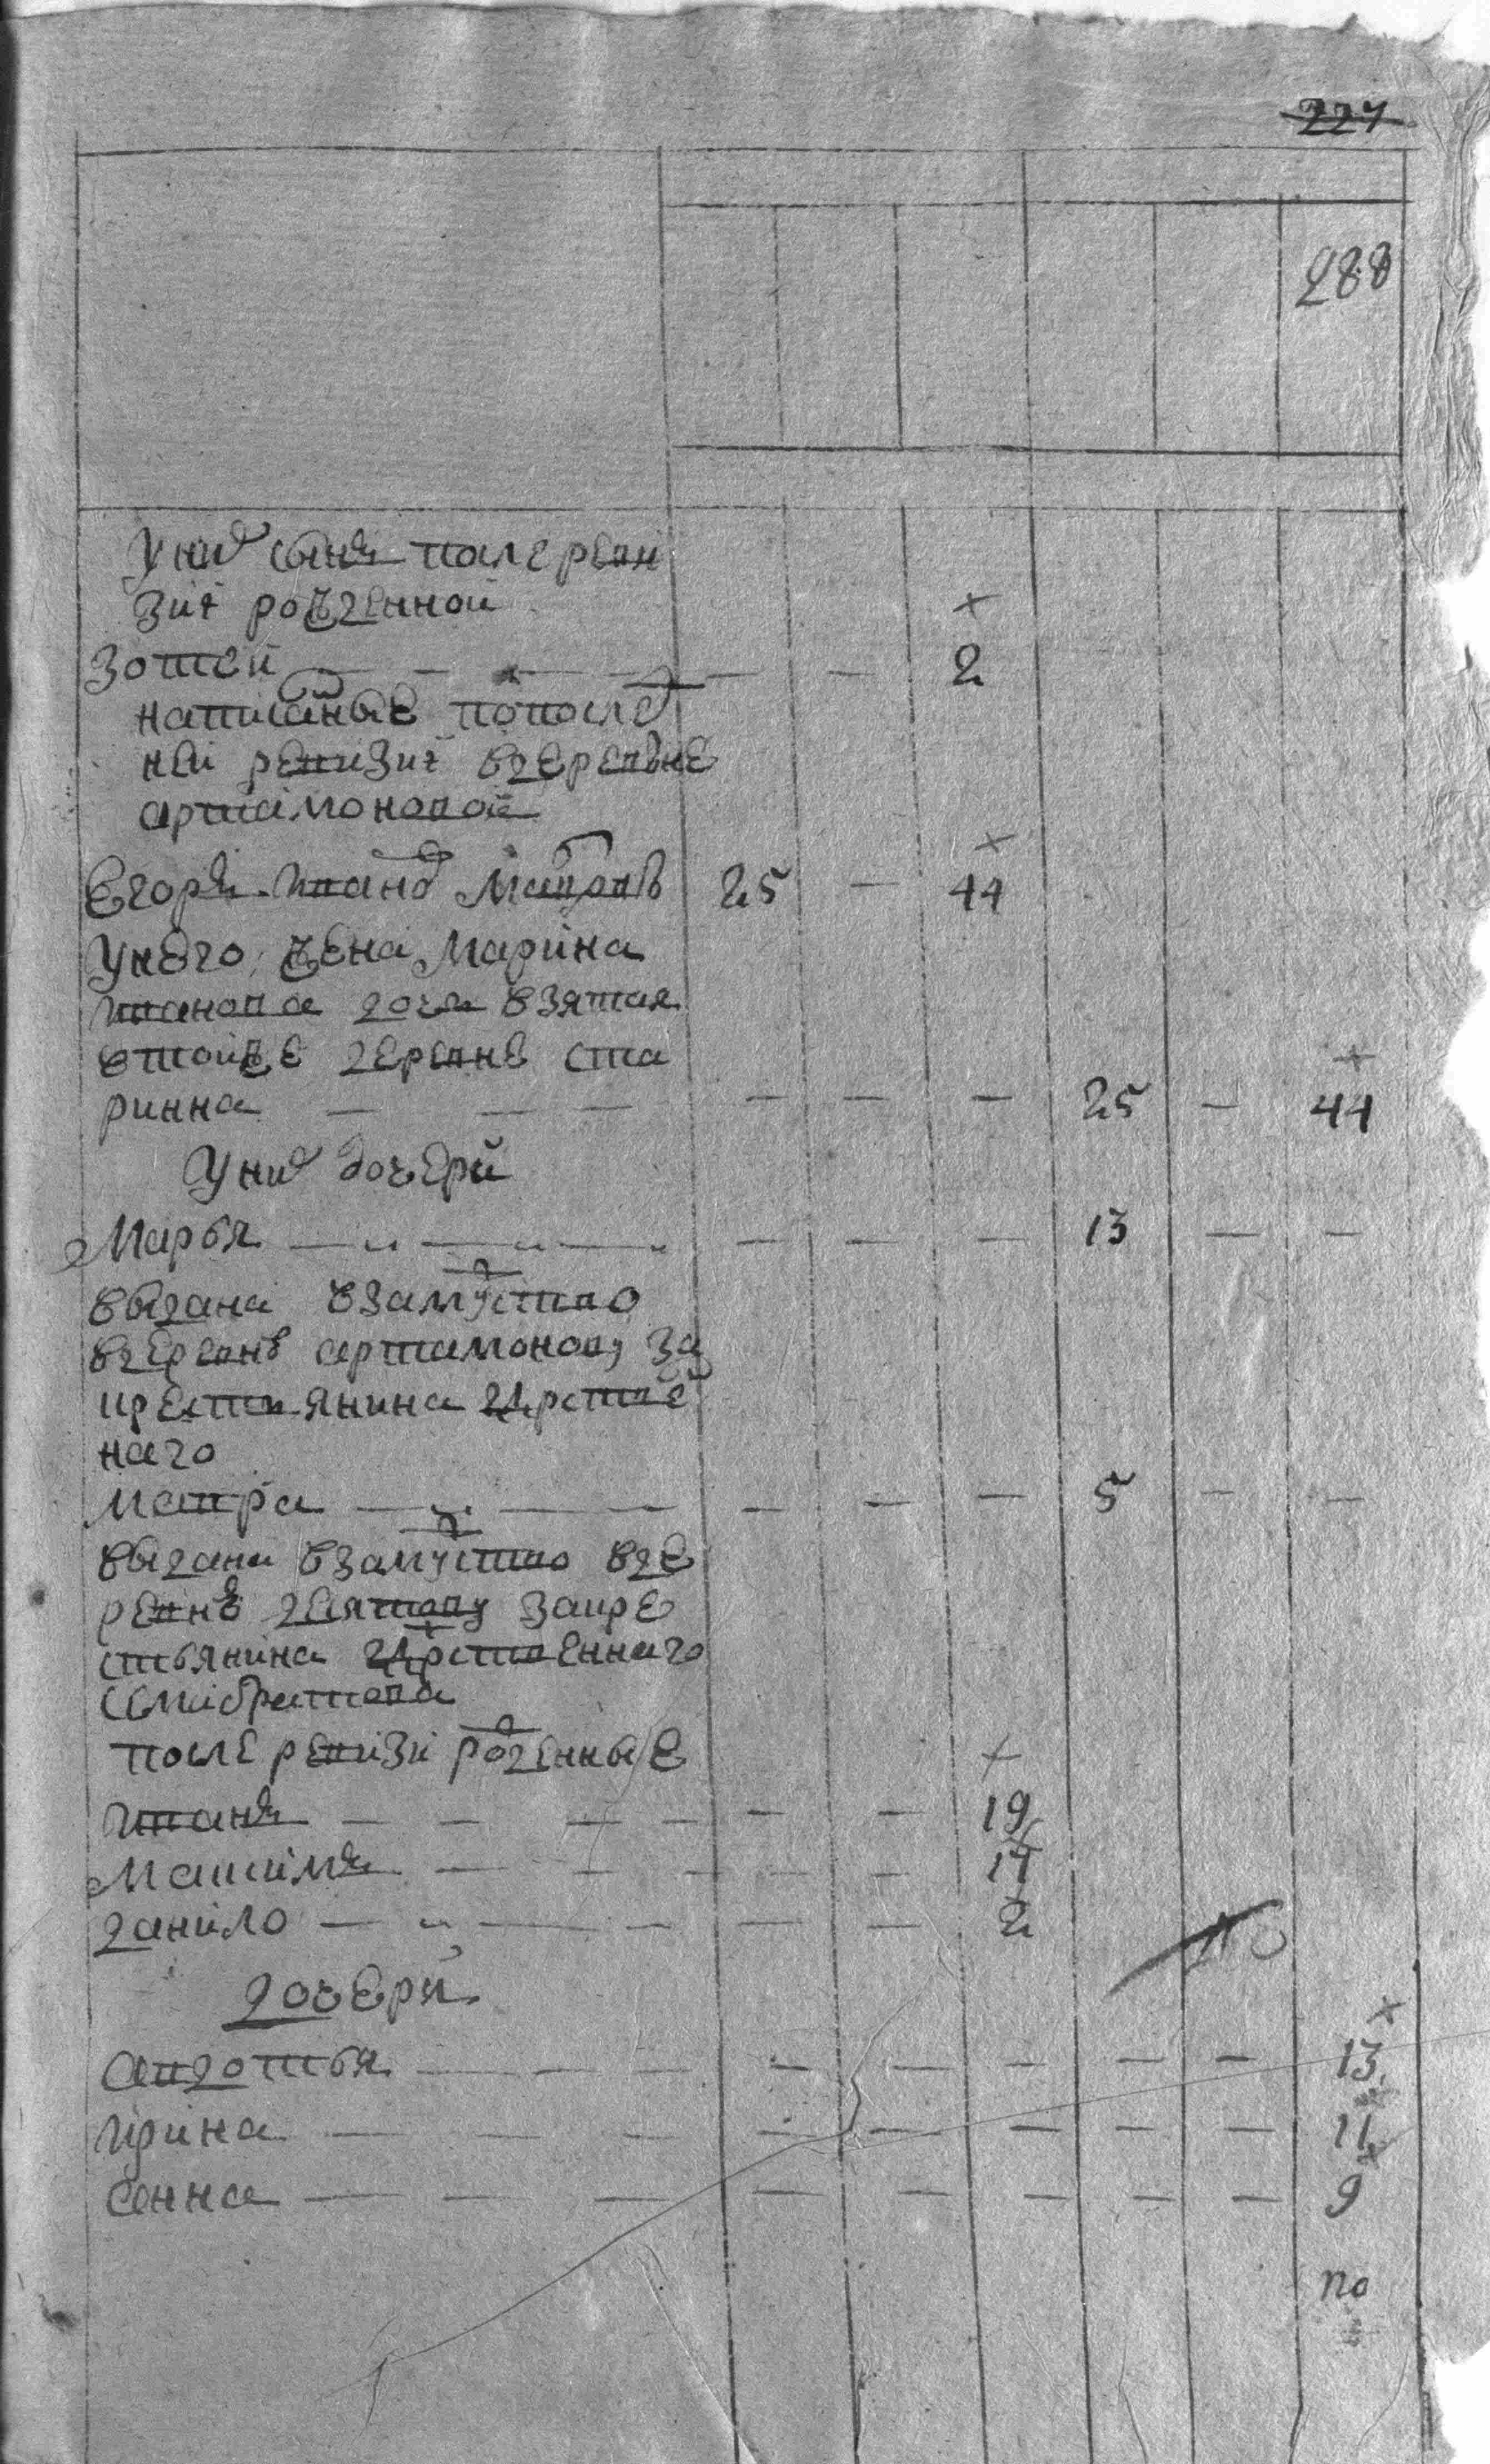 227
288
У них сынъ после реви
зиі рожденной
Зотей 2
написанные по послед
ней ревизиі в деревне
артамоновой
Егоръ Ивановъ 25 44
У него жена Марина
Иванова дочь взятая
в тойже деревне ста
ринна 25 44
У них дочери
Марья 13
выдана взамужство
в деревнѣ артамонову за
крестьянина Дарстве
наго
Мавра 5
выдана взамужство в де
ревнѣ девятову за кре
стьянина Дарственнаго
после ревизи рожденные
Иванъ 19
Максимъ 17
данило 2
дочери
авдотья 13
Ирина 11
анна 9
по